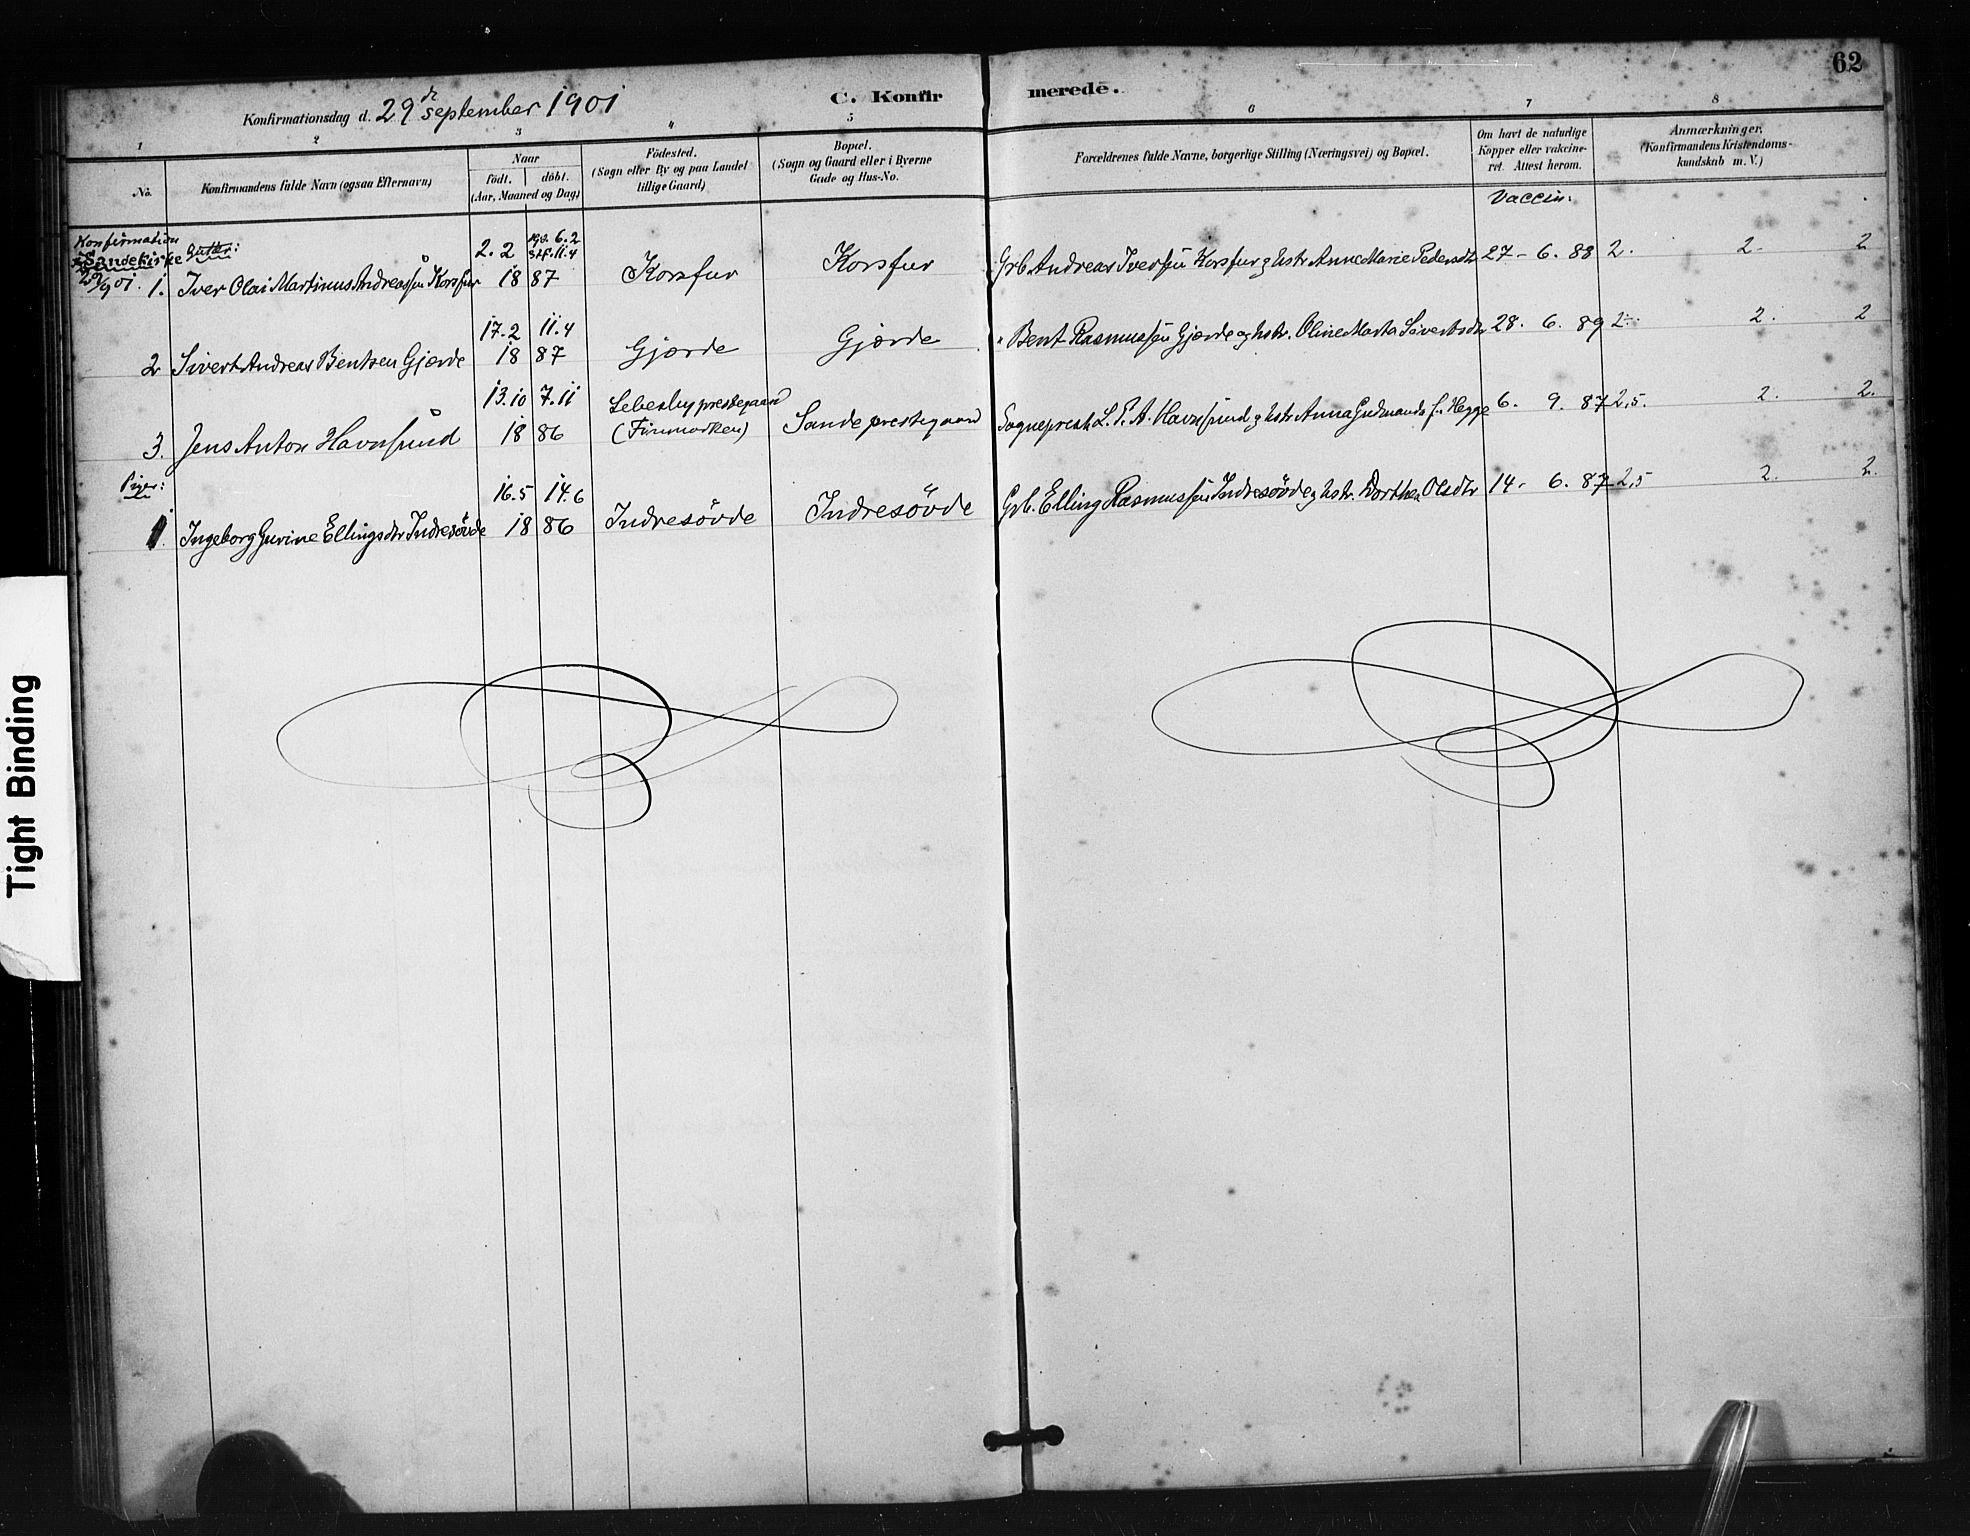 62
Konfirmationsdag d. 29de september 1901 C. Konfir merede.
1 2 3 4 5 6 7 8
No. Konfirmandens fulde Navn (ogsaa Efternavn)
Naar
født. døbt.
(Aar, Maaned og Dag)
Fødested.
(Sogn eller By og paa Landet
tillige Gaard)
Bopæl.
(Sogn og Gaard eller i Byerne
Gade og Hus-No.
Forældrenes fulde Navne, borgerlige Stilling (Næringsvei) og Bopæl.
Om havt de naturlige
Kopper eller vakcine-
ret. Attest herom.
Anmærkninger,
(Konfirmandens Kristendoms-
kundskab m. V.)
Vaccin:
Konfirmation
i Sandekirke
29/9 01.
Gutter:
2.2 6.2
11.4
1. Iver Olai Martinus Andreassen Korsfur 18 87 Korsfur Korsfur Grb. Andreas Iversen Korsfur g hstr Anne Marie Pedersdtr 27 - 6. 88 2. 2. 2
17.2 11.4
2 Sivert Andreas Bentsen Gjerde 18 87 Gjerde Gjerde " Bent Rasmussen Gjerde og hstr. Oline Marta Sivertsdtr 28. 6. 89 2. 2. 2
13.10 7.11
3. Jens Anton Havnsund 18 86 Lebesby prestegaard
(Finmarken) Sande prestegaard Sogneprest L. P. A. Havnsund g hstr Anna Gudmanda f. Hegge 6. 9. 87 2,5. 2. 2.
Piger:
16.5 14.6
1. Ingeborg Gurine Ellingsdtr Indresövde 18 86 Indresövde Indresövde Grb. Elling Rasmussen Indresövde g hstr. Dorthea Olsdtr 14. 6. 87 2,5 2. 2.
Tight Binding